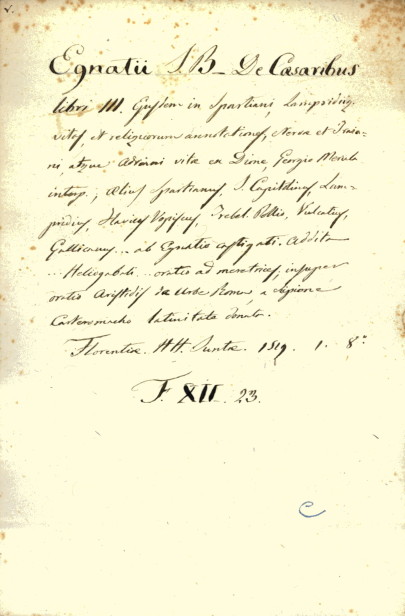 Egnatii I. B_ De Cæsaribus
libri III. Ejusdem in Spartiani, Lampridiiq.
vitas, et reliquorum annotationes, Nervæ et Traja-
ni, atque Adriani vitæ ex Dione, Georgio Merula
interp., Ælius Spartianus, J. Capitolinus, Lam-
pridius, Flavius Vopiscus, Trebel. Pollio, Vulcatius,
Gallicanus... ab Egnatio castigati. Addita
... Heliogabali... oratio ad meretrices, insuper
oratio Aristidis de Urbe Roma, a Scipione
Carteromacho latinitate donata.
Florentiæ. HH. Juntæ. 1519. 1. 8º
F. XII. 23.
C